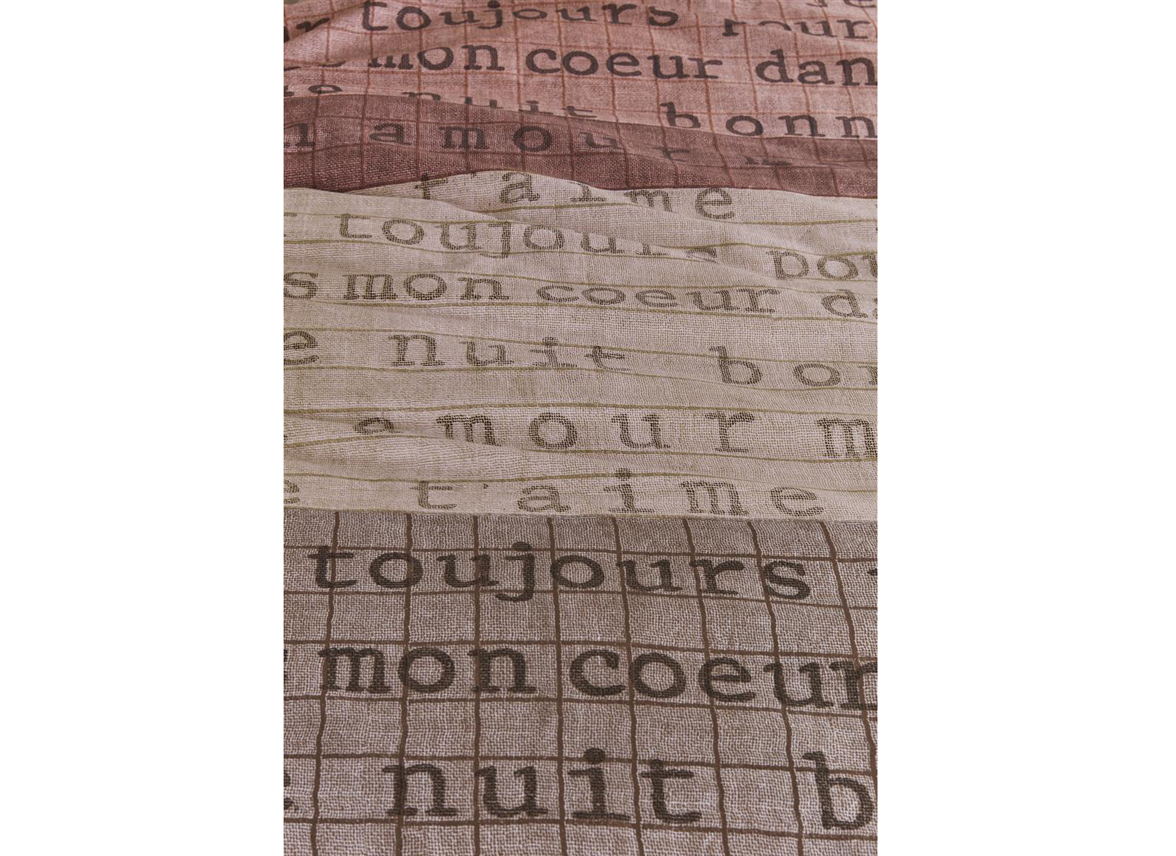 toujours pour
mon coeur dan
nuit bonn
amour
t'aime
toujours pou
s mon coeur da
e nuit bon
amour m
e t'aime
toujours
mon coeur
nuit b